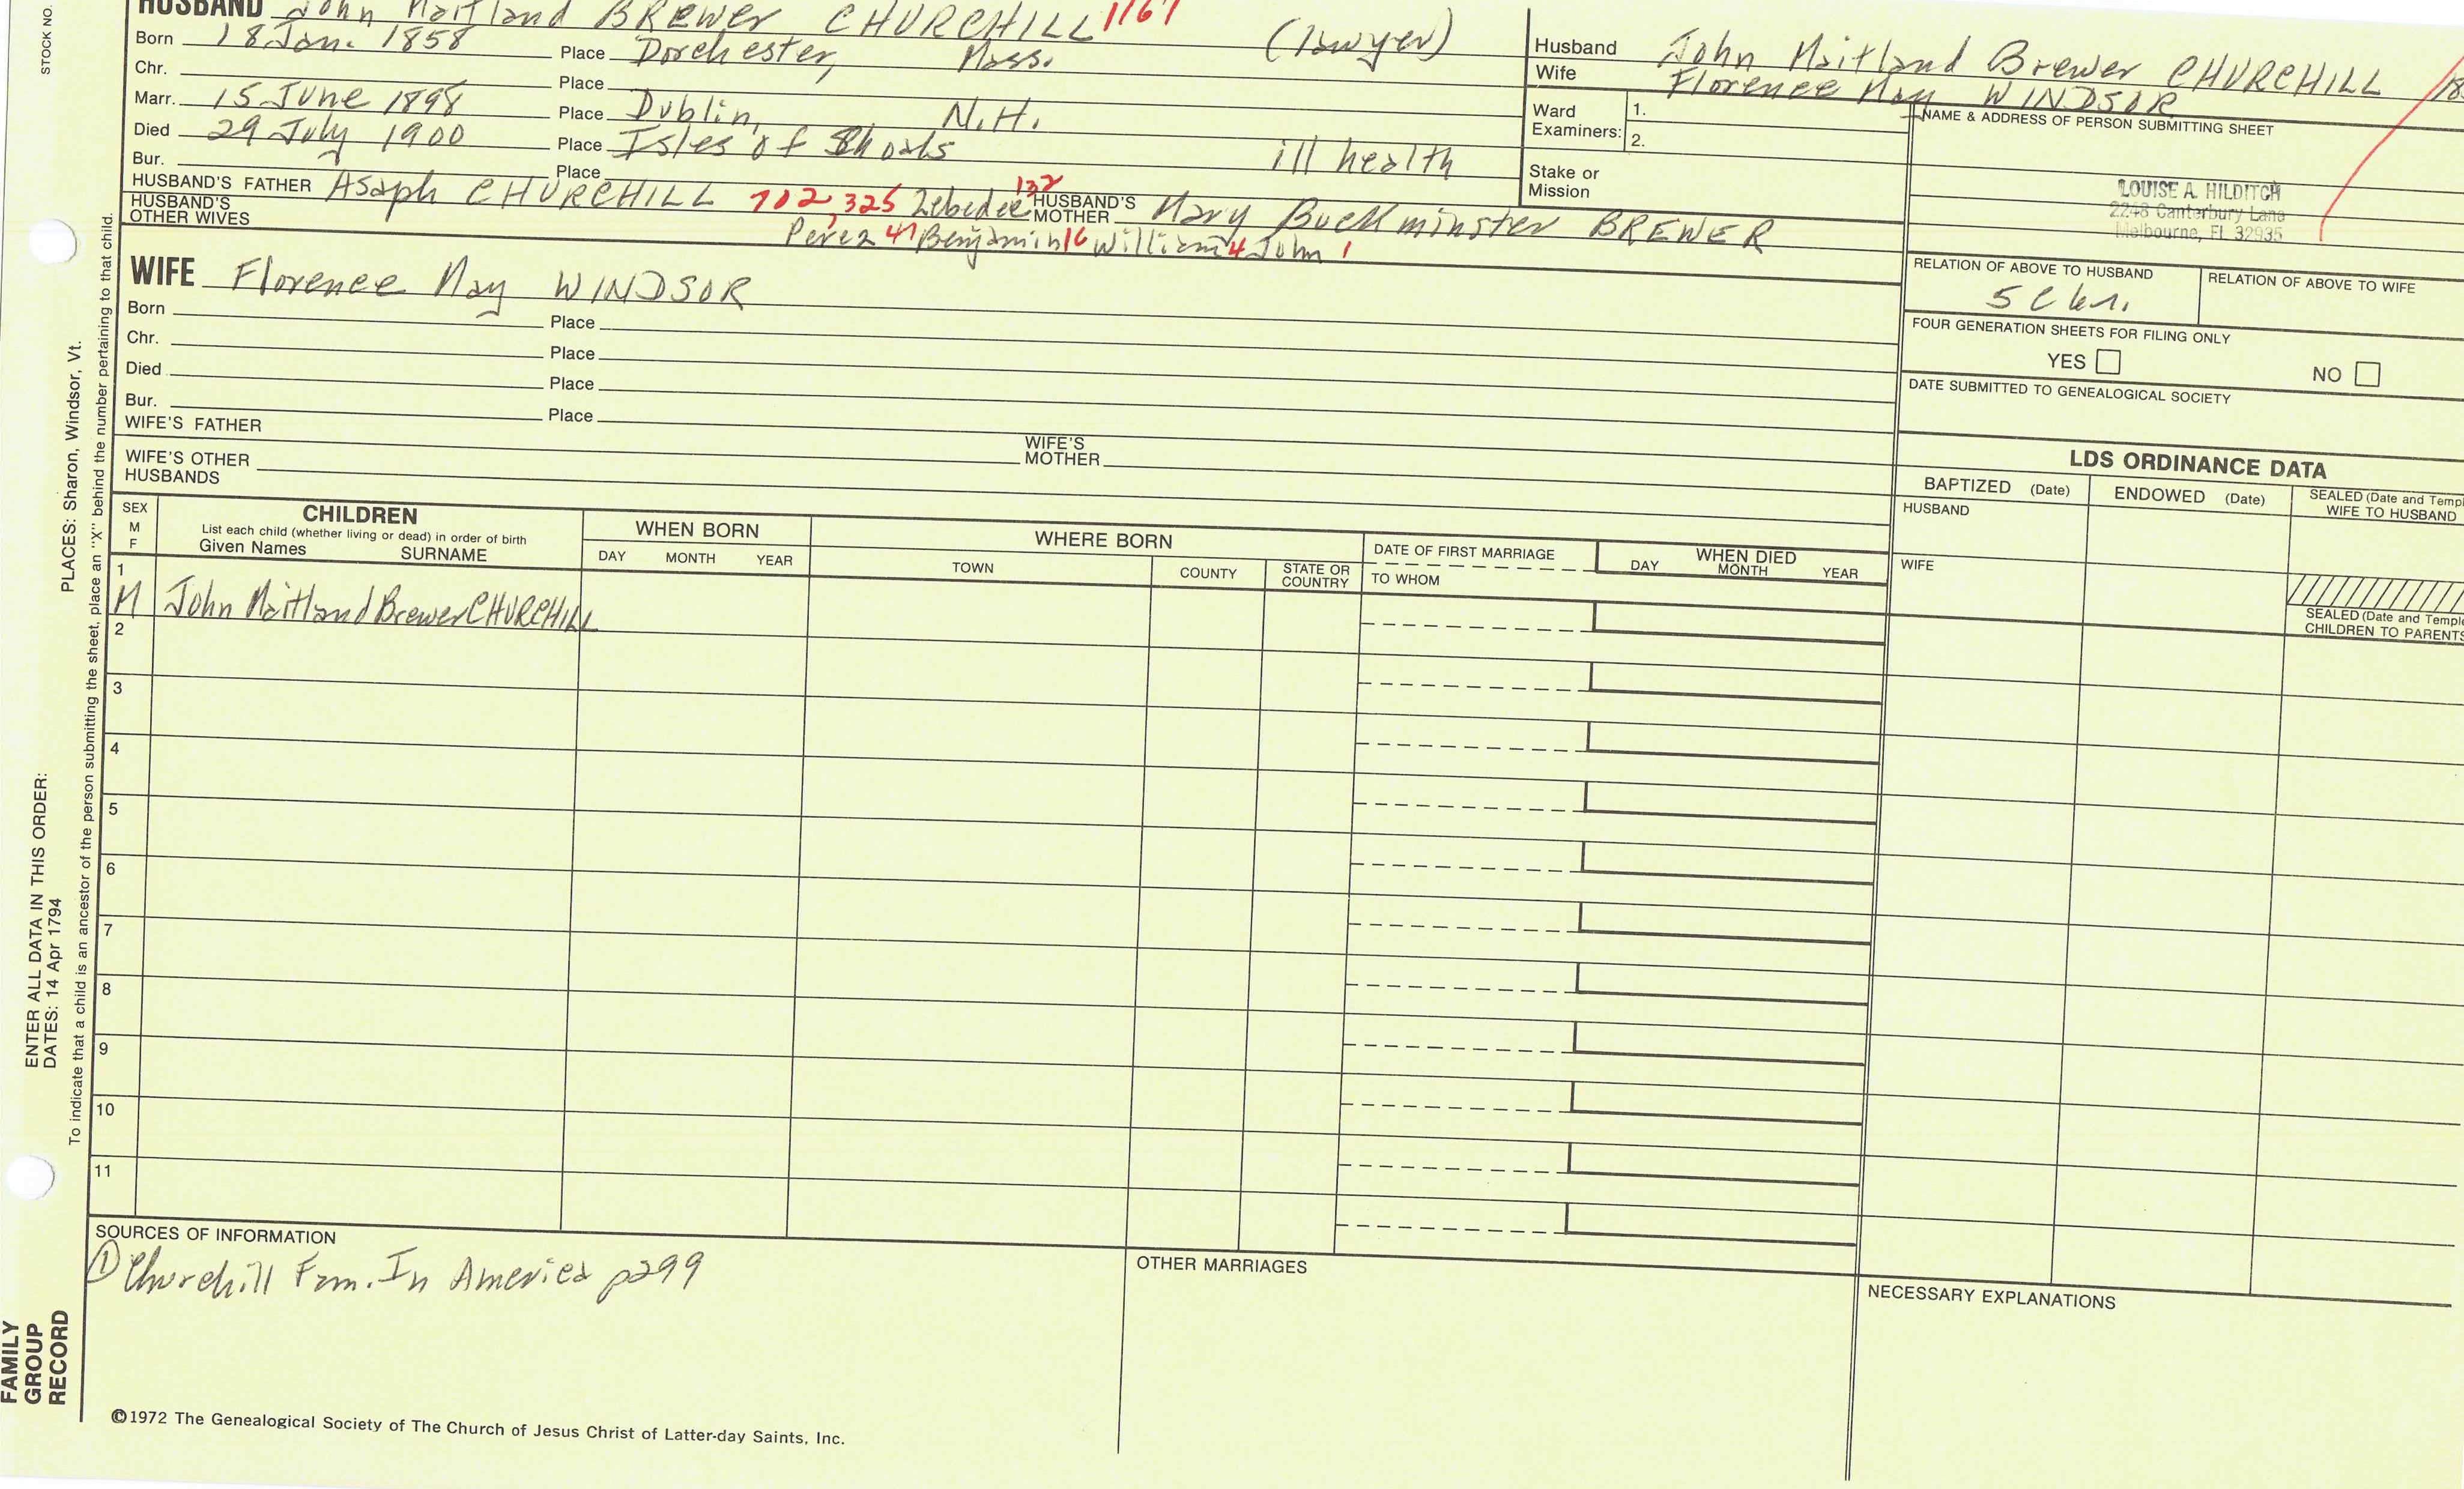 HUSBAND John Maitland BREWER CHURCHILL 1167
(lawyer)
Born 18 Jan. 1858 Place Dorchester, Mass.
Chr. Place
Marr. 15 June 1898 Place Dublin, N.H.
Died 29 July 1900 Place Isles of Shoals ill health
Bur. Place
HUSBAND'S FATHER Asaph CHURCHILL 702 325 Zebedee 132 HUSBAND'S MOTHER Mary Buckminster BREWER
HUSBAND'S OTHER WIVES
Perez 41 Benjamin 16 William 4 John 1
Husband John Maitland Brewer CHURCHILL
Wife Florence May WINDSOR
Ward Examiners: 1.
2.
Stake or Mission
NAME & ADDRESS OF PERSON SUBMITTING SHEET
LOUISE A. HILDITCH
2248 Canterbury Lane
Melbourne, FL 32935
RELATION OF ABOVE TO HUSBAND
RELATION OF ABOVE TO WIFE
FOUR GENERATION SHEETS FOR FILING ONLY
YES NO
DATE SUBMITTED TO GENEALOGICAL SOCIETY
WIFE Florence May WINDSOR
Born Place
Chr. Place
Died Place
Bur. Place
WIFE'S FATHER WIFE'S MOTHER
WIFE'S OTHER HUSBANDS
LDS ORDINANCE DATA
BAPTIZED (Date) ENDOWED (Date) SEALED (Date and Templ
WIFE TO HUSBAND
HUSBAND
WIFE
SEALED (Date and Temple
CHILDREN TO PARENTS
SEX
M
F
CHILDREN
List each child (whether living or dead) in order of birth
Given Names SURNAME
WHEN BORN
DAY MONTH YEAR
WHERE BORN
TOWN COUNTY STATE OR COUNTRY
DATE OF FIRST MARRIAGE
TO WHOM
WHEN DIED
DAY MONTH YEAR
1
M John Maitland Brewer CHURCHILL
2
3
4
5
6
7
8
9
10
11
SOURCES OF INFORMATION
① Churchill Fam. In America p299
OTHER MARRIAGES
NECESSARY EXPLANATIONS
©1972 The Genealogical Society of The Church of Jesus Christ of Latter-day Saints, Inc.
STOCK NO.
PLACES: Sharon, Windsor, Vt.
To indicate that a child is an ancestor of the person submitting the sheet, place an "X" behind the number pertaining to that child.
ENTER ALL DATA IN THIS ORDER:
DATES: 14 Apr 1794
FAMILY
GROUP
RECORD